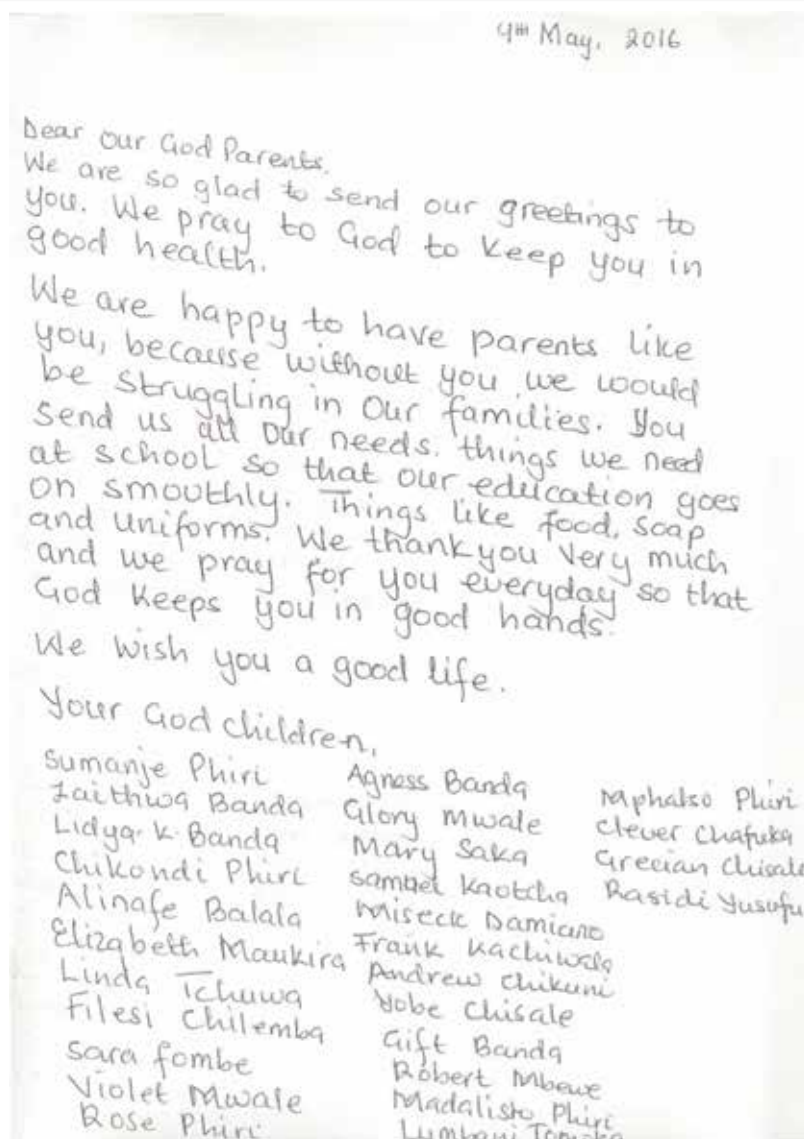 4th May, 2016
Dear our God Parents.
We are so glad to send our greetings to
you. We pray to God to keep you in
good health.
We are happy to have parents like
you, because without you we would
be struggling in our families. You
send us all our needs. things we need
at school so that our education goes
on smoothly. Things like food, soap
and uniforms. We thank you very much
and we pray for you everyday so that
God keeps you in good hands.
We wish you a good life.
Your God children,
Sumanje Phiri
Zaithwa Banda
Lidya. K. Banda
Chikondi Phiri
Alinafe Balala
Elizabeth Maukira
Linda Tchuwa
Filesi Chilemba
Sara fombe
Violet Mwale
Rose Phiri
Agness Banda
Glory Mwale
Mary Saka
Samuel Kaotcha
Miseck Damiano
Frank Kachiwala
Andrew Chikuni
Yobe Chisale
Gift Banda
Robert Mbewe
Madalisto Phiri
Lumbani
Mphatso Phiri
Clever Chafuka
Grecian Chisale
Rasidi Yusufu